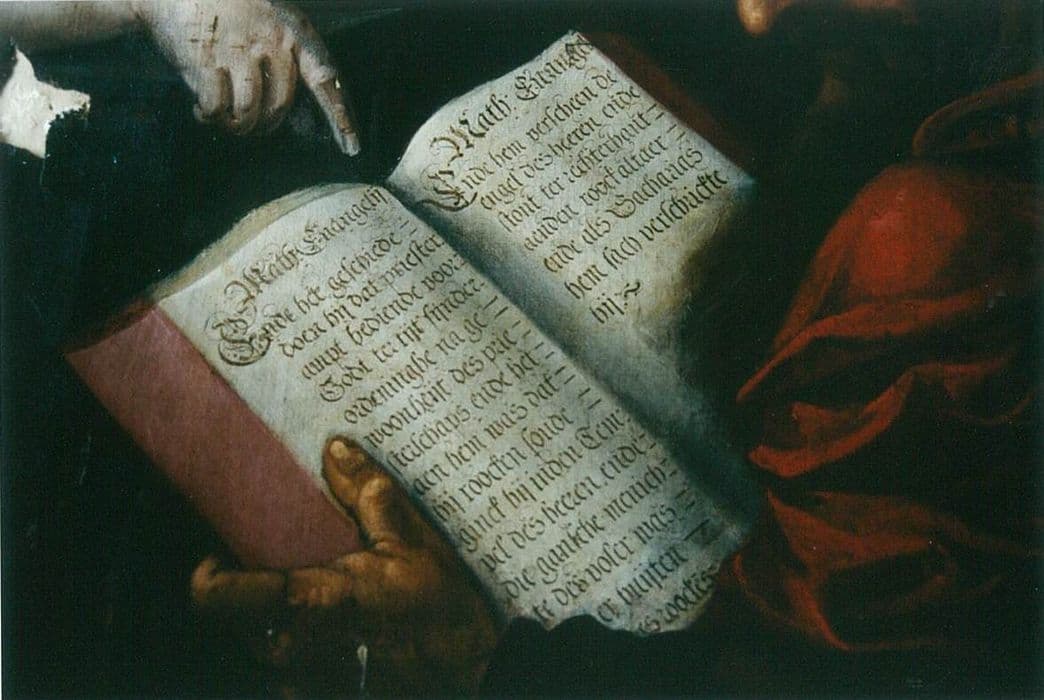 Math Euangely
Ende het geschiede
doen hij dat priester
ampt bediende voor
Godt te sijn sinder
ordeninghe na ge
woonheijt des prie
sterschaps ende het
aen hem was dat
hij roocken soude
ginck hij inden Tem
pel des heeren ende
die gantsche menich
te des volcx was
buijten
des roockes
Math Euangeli
Ende hem verscheen de
engel des heeren ende
stont ter rechterhant
aendat roock altaer
ende als Sacharias
hem sach verschrickte
hij